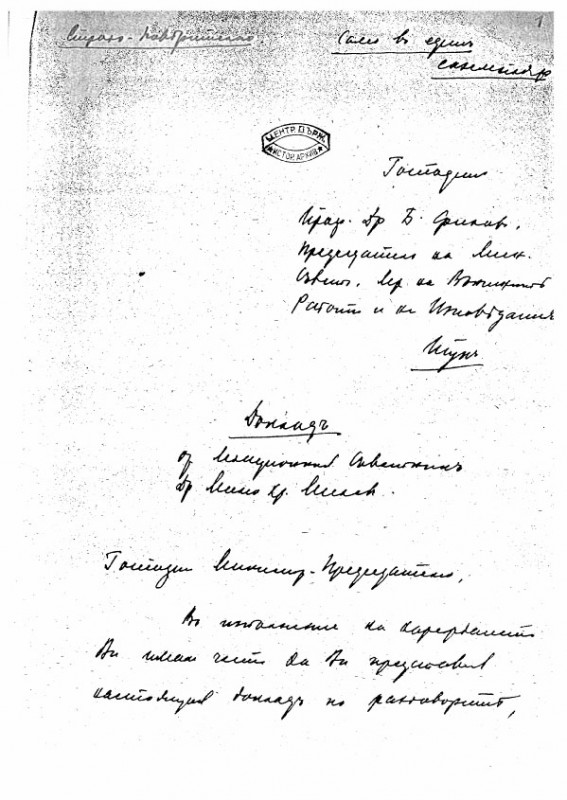 1
Строго-поверително.
Само въ единъ
екземпляр
ЦЕНТР. ДЪРЖ.
ИСТОР. АРХИВ
Господин
Проф. Др Б. Филов,
Председател на Мин.
Съвет, на Външнитѣ
Работи и на Изповѣданията
Тукъ
Докладъ
от Легационния Съветникъ
Др Милев.
Господин Министр-Председателю,
Во изпълнение на
Ви имам честь да Ви представя
настоящия докладъ по разговоритѣ,